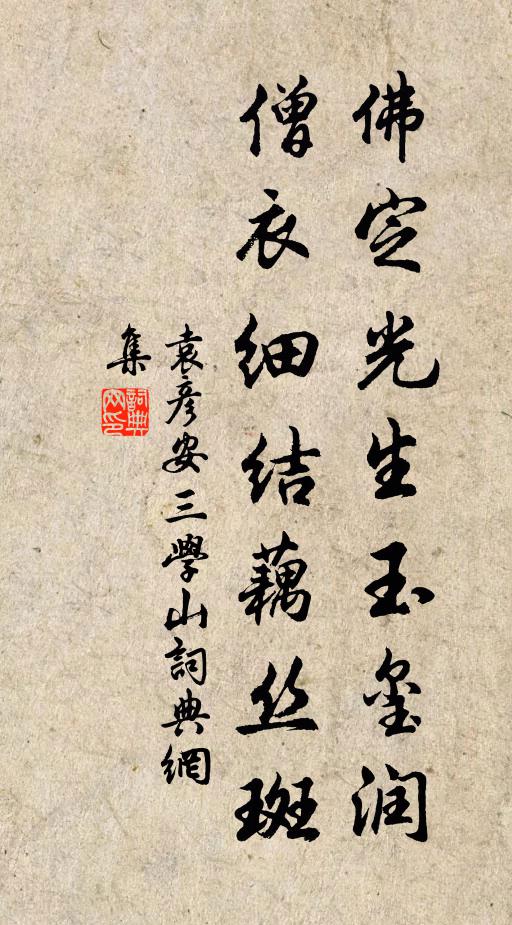 佛定光生玉玺润
僧衣细结藕丝斑
袁彦安三學山詞典網
集
詞典
网印